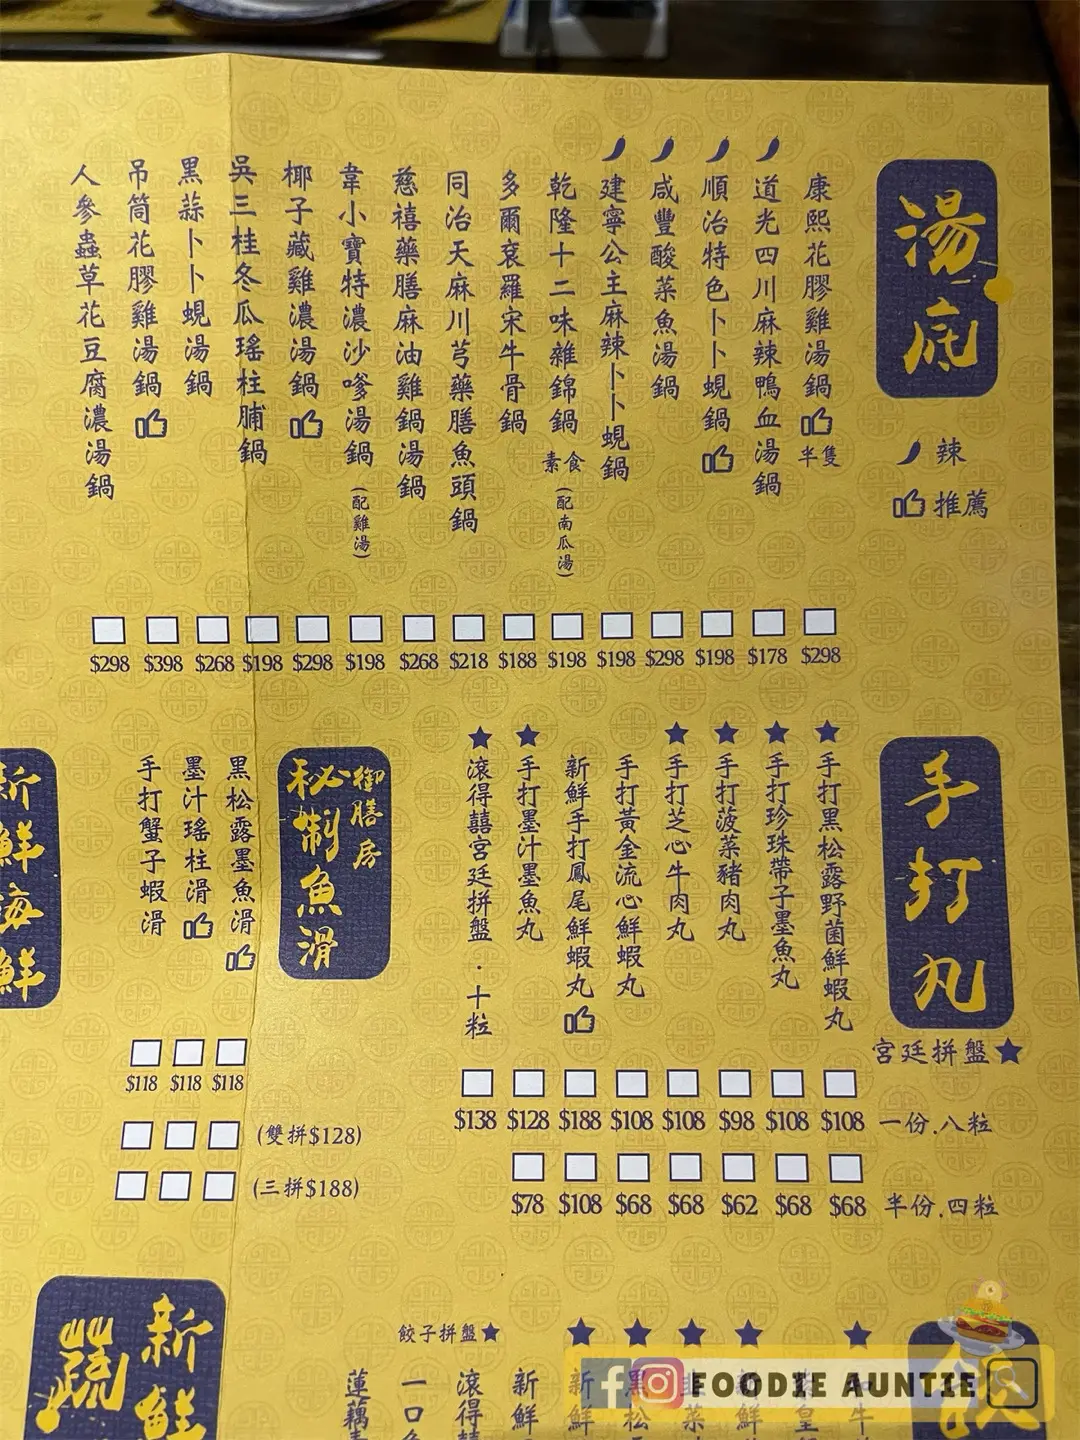 湯底
辣
推薦
康熙花膠雞湯鍋
半隻
道光四川麻辣鴨血湯鍋
順治特色卜卜蜆鍋
咸豐酸菜魚湯鍋
建寧公主麻辣卜卜蜆鍋
乾隆十二味雜錦鍋
素食
(配南瓜湯)
多爾袞羅宋牛骨鍋
同治天麻川芎藥膳魚頭鍋
慈禧藥膳麻油雞鍋湯鍋
韋小寶特濃沙嗲湯鍋
(配雞湯)
椰子藏雞濃湯鍋
吳三桂冬瓜瑤柱脯鍋
黑蒜卜卜蜆湯鍋
吊筒花膠雞湯鍋
人參蟲草花豆腐濃湯鍋
$298 $398 $268 $198 $298 $198 $268 $218 $188 $198 $198 $298 $198 $178 $298
手打丸
宮廷拼盤★
★手打黑松露野菌鮮蝦丸
★手打珍珠帶子墨魚丸
★手打菠菜豬肉丸
★手打芝心牛肉丸
手打黃金流心鮮蝦丸
新鮮手打鳳尾鮮蝦丸
★手打墨汁墨魚丸
★滾得囍宮廷拼盤·十粒
$138 $128 $188 $108 $108 $98 $108 $108 一份.八粒
$78 $108 $68 $68 $62 $68 $68 半份.四粒
御膳房
秘制魚滑
黑松露墨魚滑
墨汁瑤柱滑
手打蟹子蝦滑
$118 $118 $118
(雙拼$128)
(三拼$188)
新鮮海鮮
餃子拼盤★
新鮮
新鮮
滾得
一口
蓮藕
新鮮
蔬
FOODIE AUNTIE